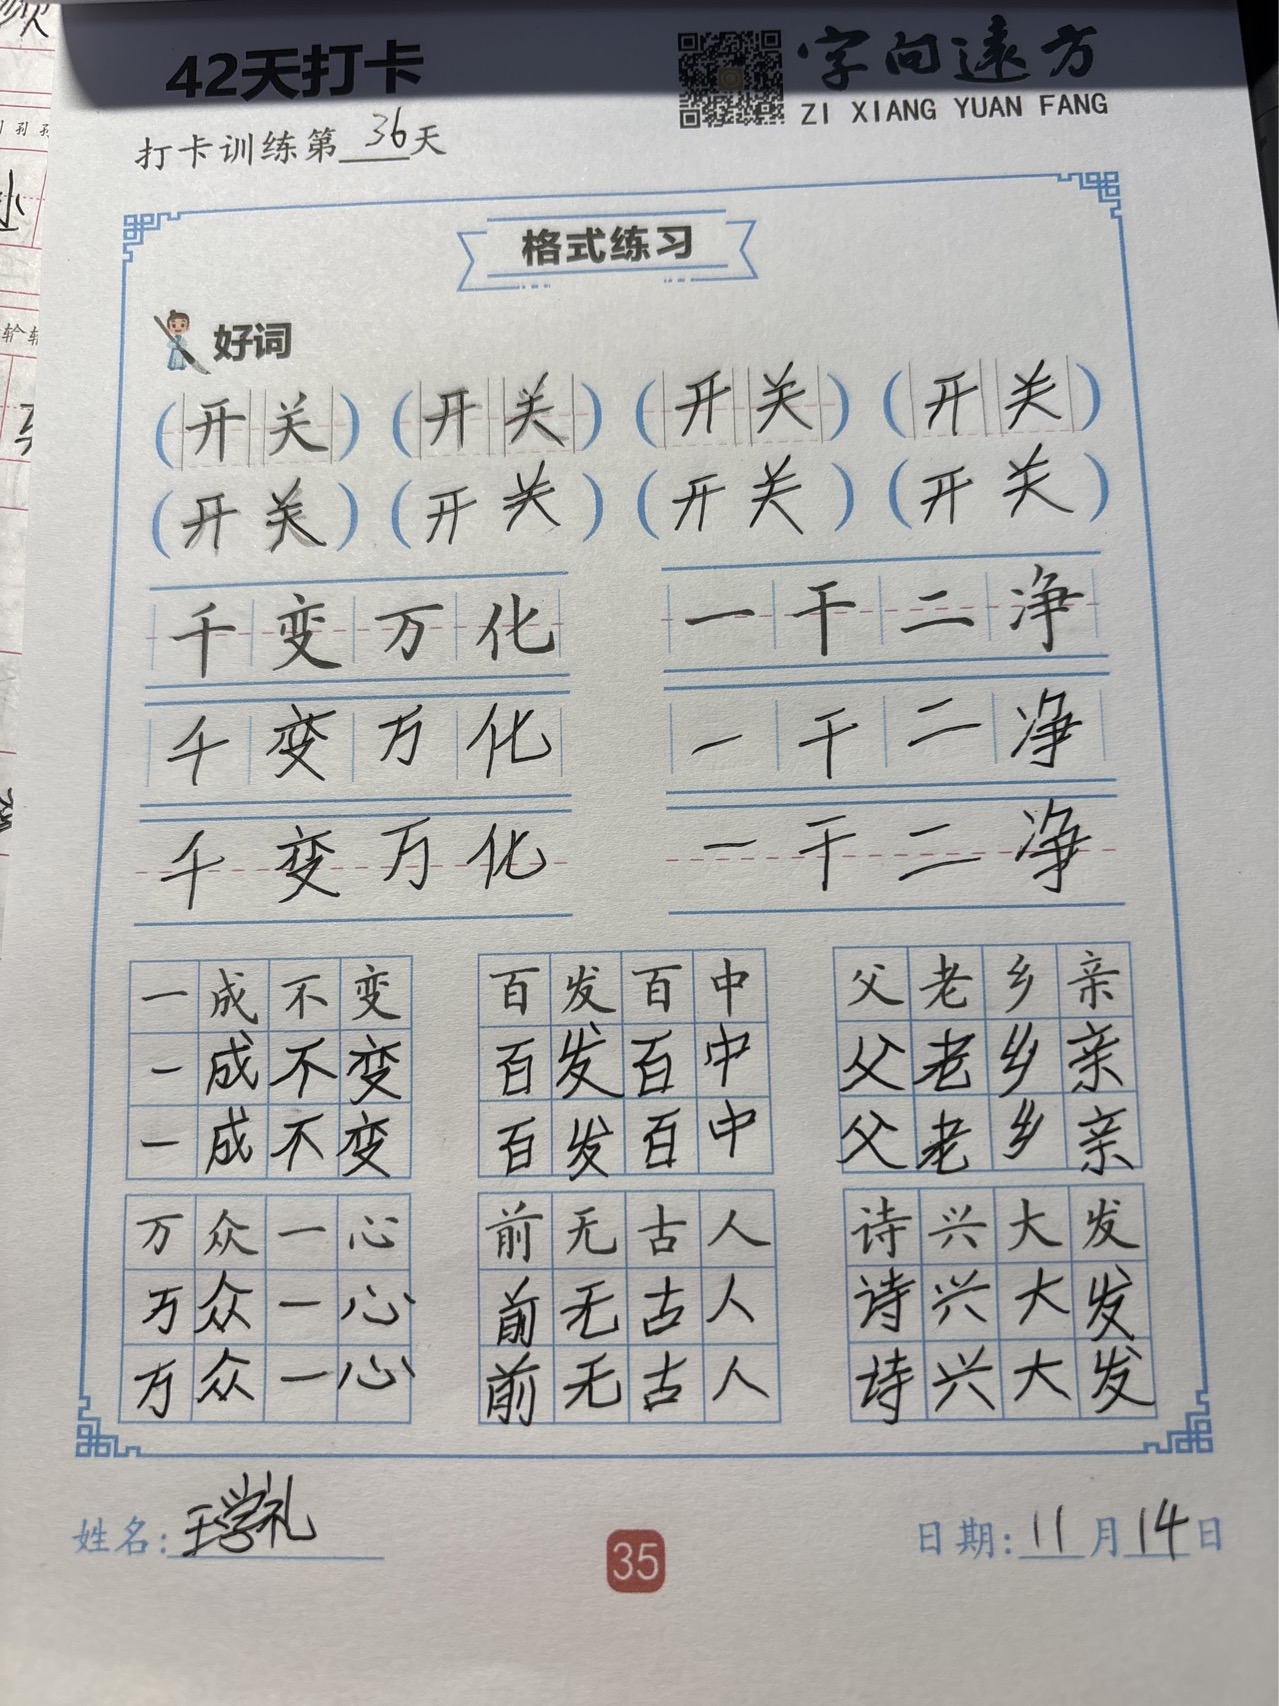 42天打卡
字向远方
ZI XIANG YUAN FANG
打卡训练第36天
格式练习
好词
(开关) (开关) (开关) (开关)
(开关) (开关) (开关) (开关)
千变万化 一干二净
千变万化 一干二净
千变万化 一干二净
一成不变 百发百中 父老乡亲
一成不变 百发百中 父老乡亲
一成不变 百发百中 父老乡亲
万众一心 前无古人 诗兴大发
万众一心 前无古人 诗兴大发
万众一心 前无古人 诗兴大发
姓名:王学礼
35
日期:11月14日